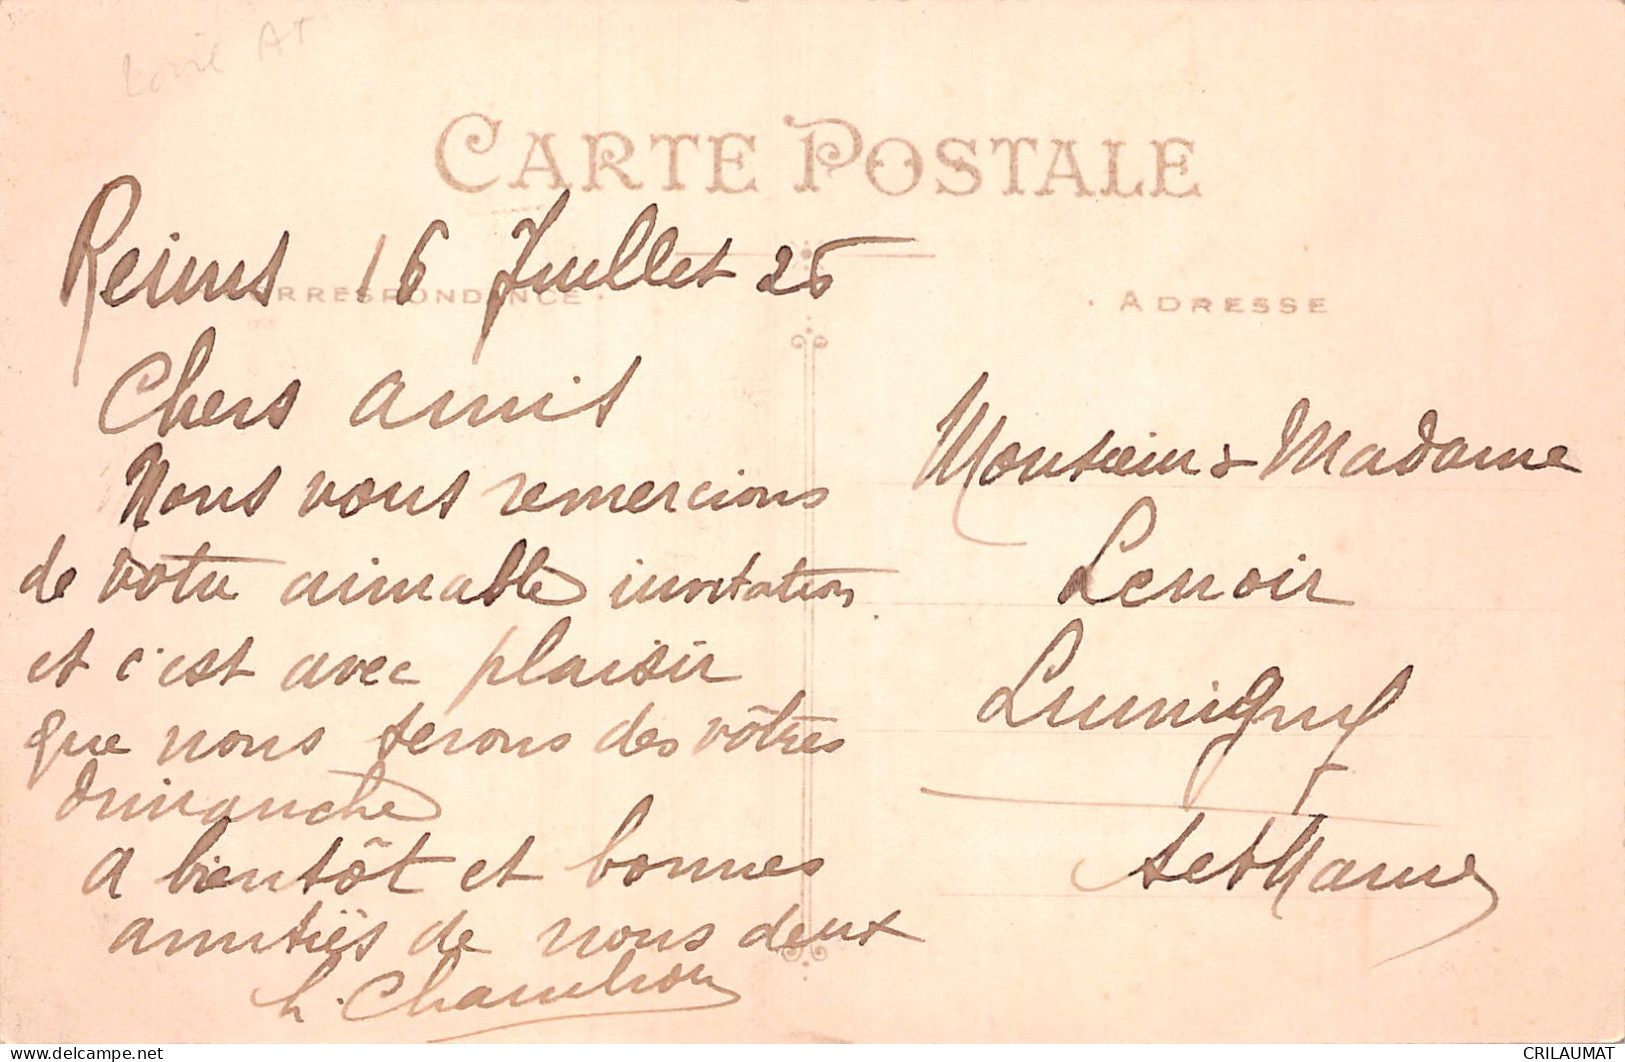 CARTE POSTALE
Reims 16 Juillet 26
CORRESPONDANCE
Chers amis
Nous vous remercions
de votre aimable invitation
et c'est avec plaisir
que nous serons des vôtres
dimanche
A bientôt et bonnes
amitiés de nous deux
h. Chambron
ADRESSE
Monsieur & Madame
Lenoir
Lumigny
Set Marne
delcampe.net
CRILAUMAT